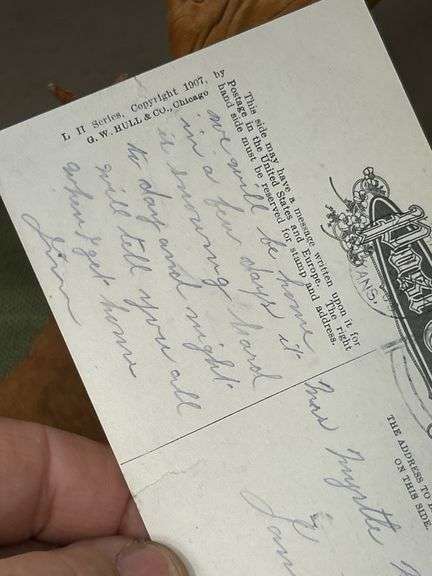 L II Series, Copyright 1907, by
G. W. HULL & CO., Chicago
This side may have a message written upon it for
Postage in the United States and Europe. The right
hand side must be reserved for stamp and address.
we will be home
in a few days it
is snowing hard
to day and night
will tell you all
when I get home
Post
ANS.
THE ADDRESS TO
ON THIS SIDE.
Myrtle